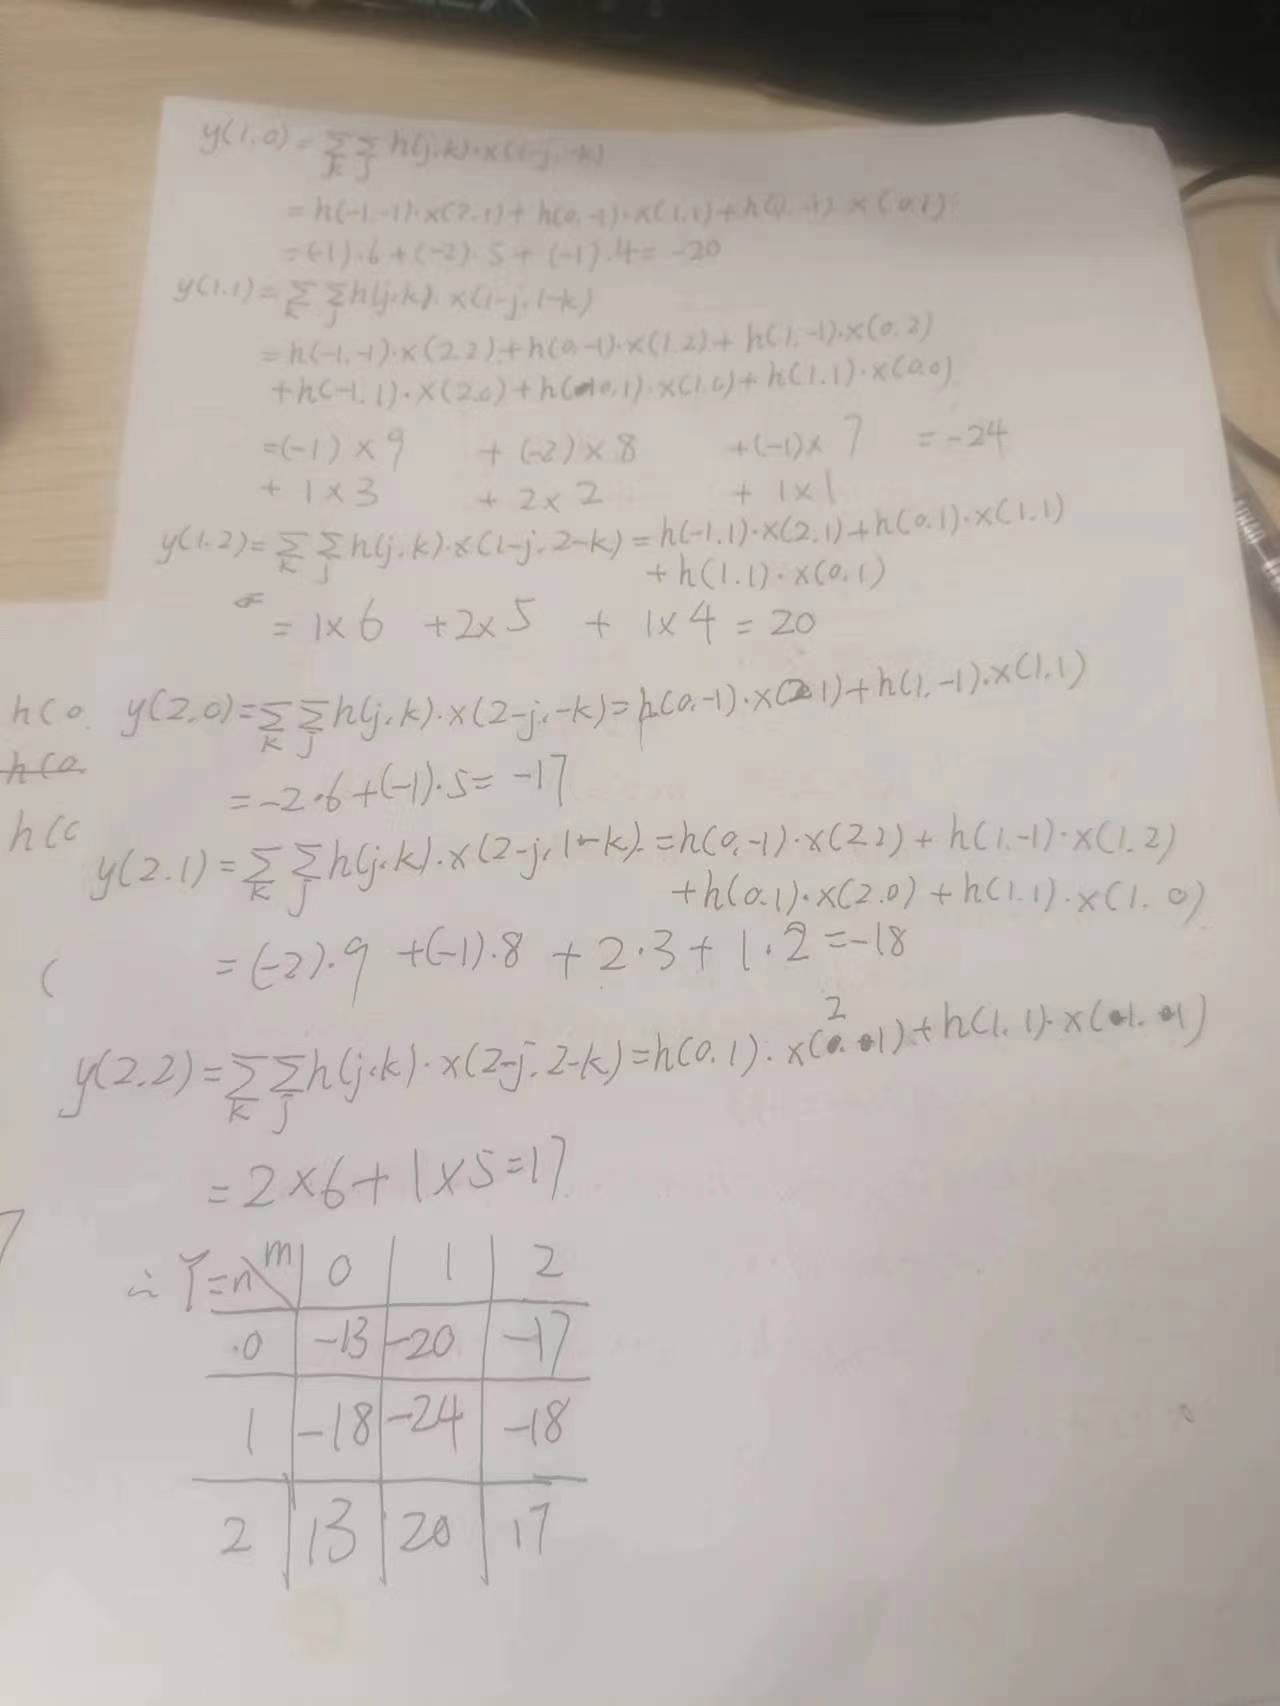 y(1,0)=∑k ∑j h(j,k)·x(1-j,-k)
=h(-1,-1)·x(2,1)+h(0,-1)·x(1,1)+h(1,-1)·x(0,1)
=(-1)·6+(-2)·5+(-1)·4=-20
y(1,1)=∑k ∑j h(j,k)·x(1-j,1-k)
=h(-1,-1)·x(2,2)+h(0,-1)·x(1,2)+h(1,-1)·x(0,2)
+h(-1,1)·x(2,0)+h(0,1)·x(1,0)+h(1,1)·x(0,0)
=(-1)×9 +(-2)×8 +(-1)×7 =-24
+1×3 +2×2 +1×1
y(1,2)=∑k ∑j h(j,k)·x(1-j,2-k)=h(-1,1)·x(2,1)+h(0,1)·x(1,1)
+h(1,1)·x(0,1)
=1×6 +2×5 +1×4=20
h(0, y(2,0)=∑k ∑j h(j,k)·x(2-j,-k)=h(0,-1)·x(2,1)+h(1,-1)·x(1,1)
=-2·6+(-1)·5=-17
y(2,1)=∑k ∑j h(j,k)·x(2-j,1-k)=h(0,-1)·x(2,2)+h(1,-1)·x(1,2)
+h(0,1)·x(2,0)+h(1,1)·x(1,0)
( =(-2)·9+(-1)·8+2·3+1·2=-18
y(2,2)=∑k ∑j h(j,k)·x(2-j,2-k)=h(0,1)·x(2,1)+h(1,1)·x(1,1)
=2×6+1×5=17
∴ Y= n\m 0 1 2
0 -13 -20 -17
1 -18 -24 -18
2 13 20 17